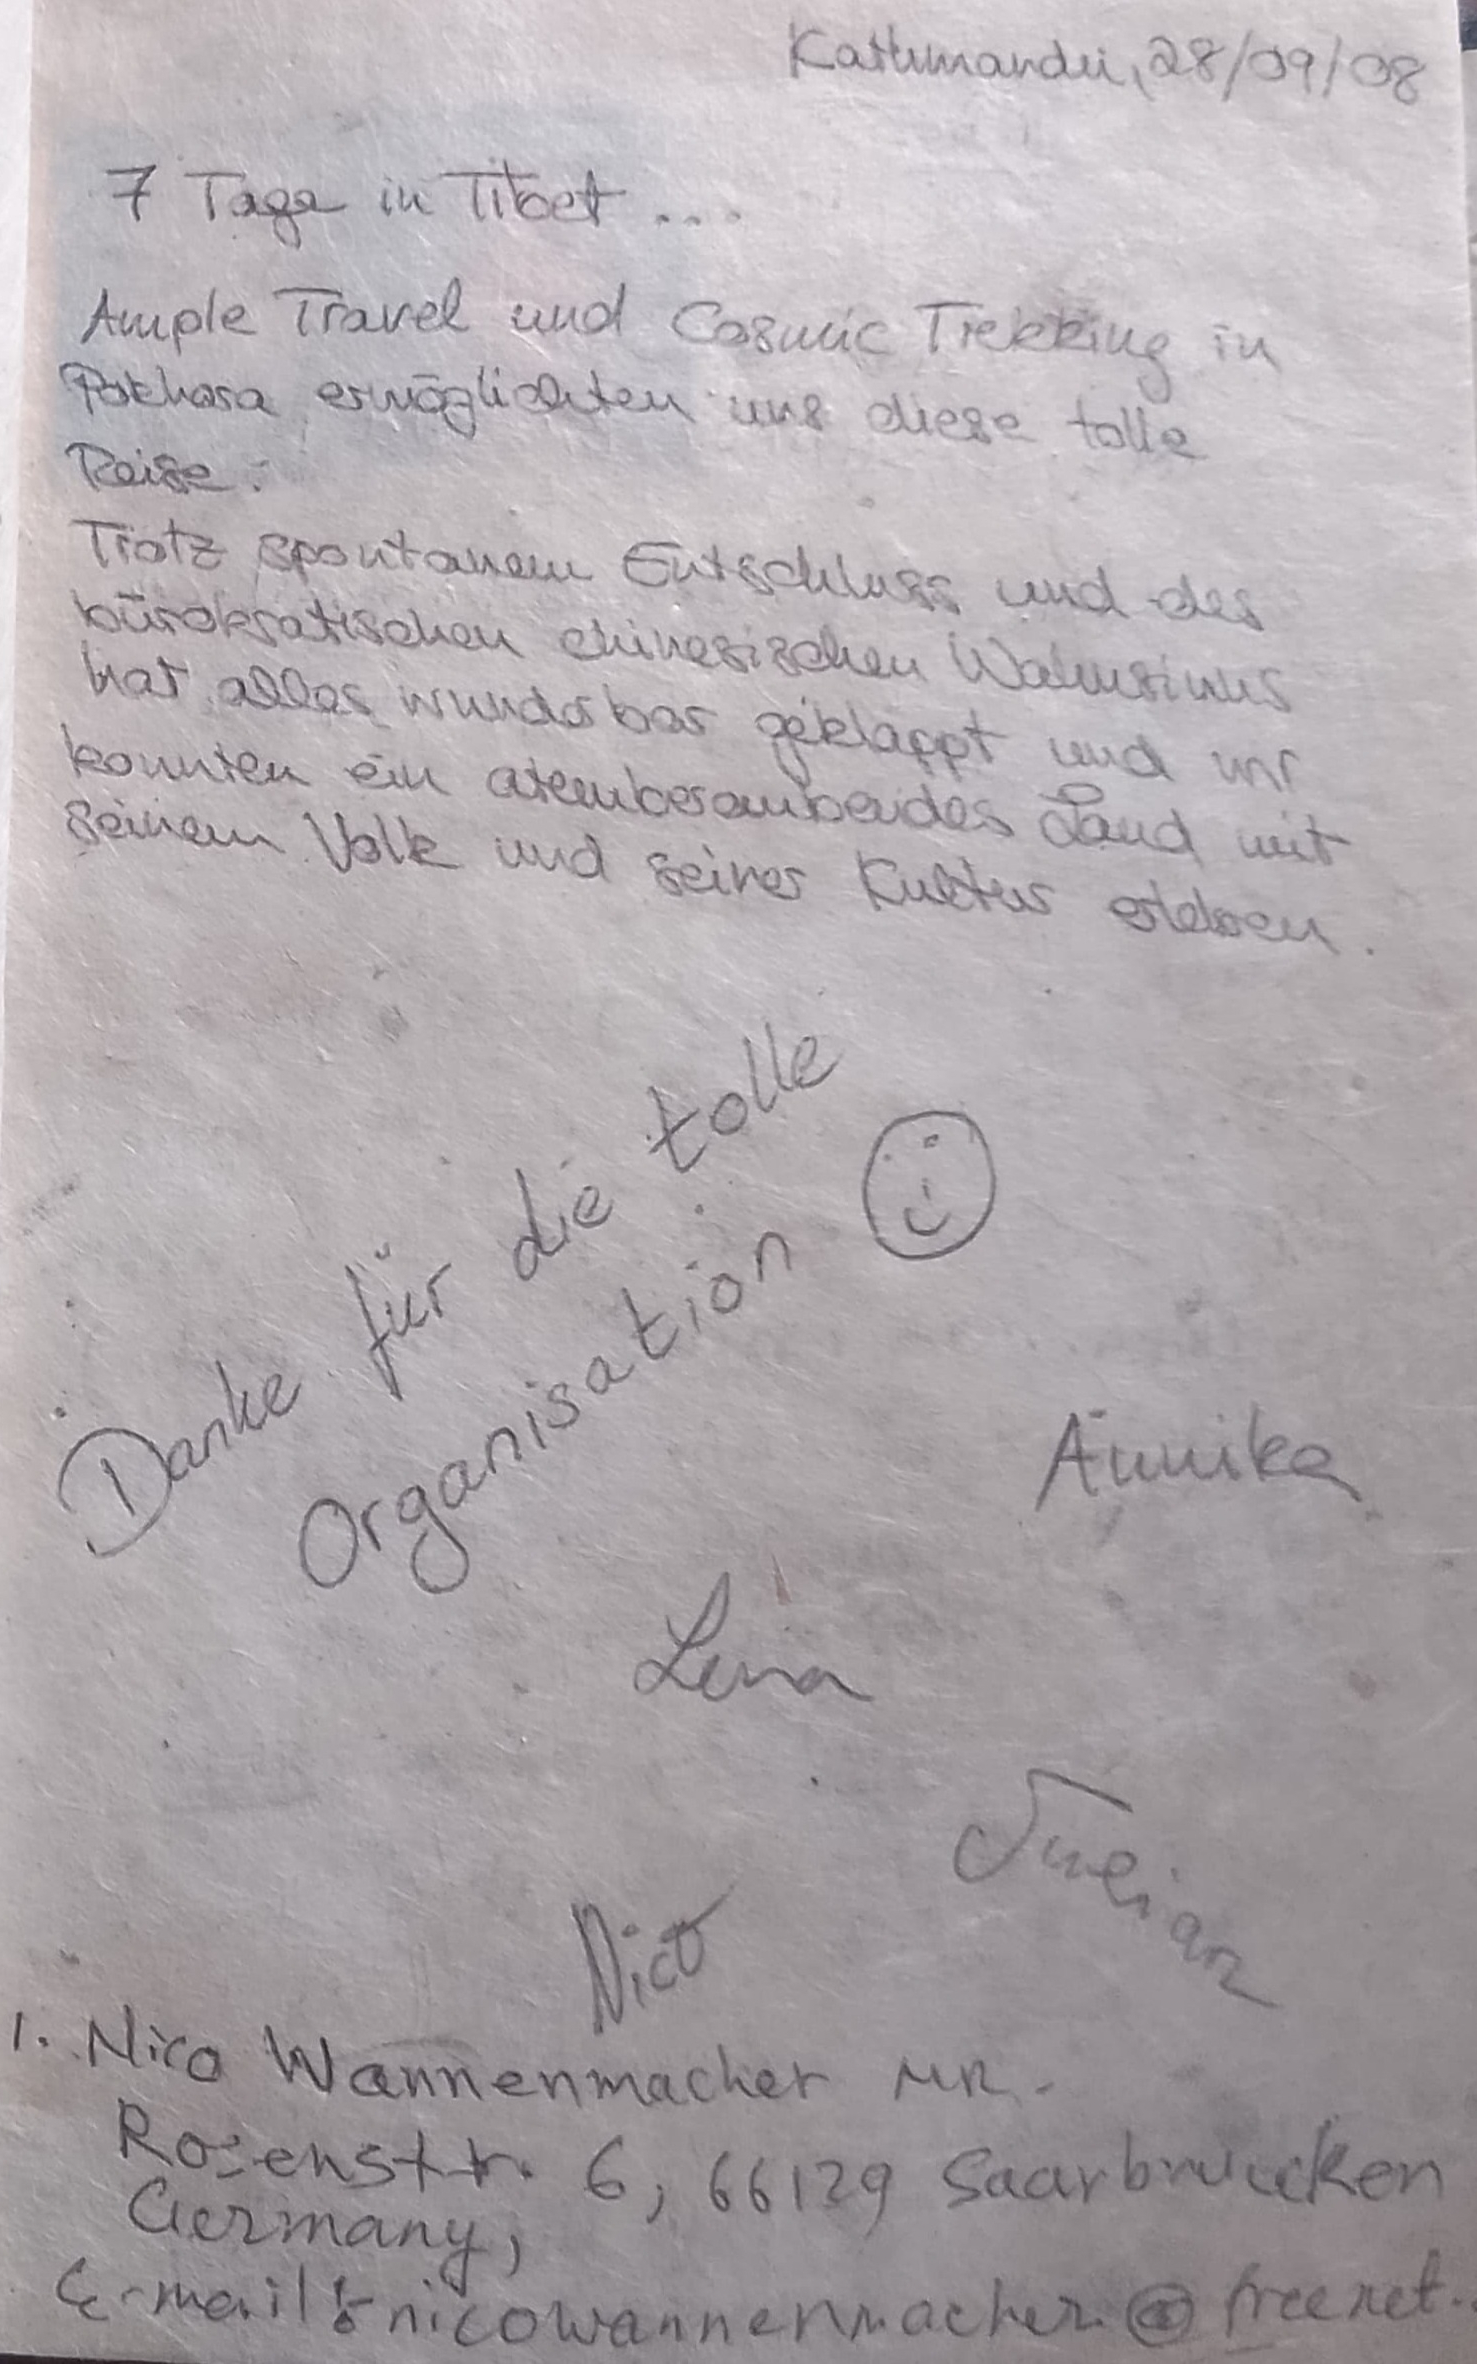 Kathmandu, 28/09/08
7 Tage in Tibet ...
Ample Travel und Cosmic Trekking in
Pokhara ermöglichten uns diese tolle
Reise.
Trotz spontanem Entschluss und des
bürokratischen chinesischen Wahnsinns
hat alles wunderbar geklappt und wir
konnten ein atemberaubendes Land mit
seinem Volk und seiner Kultur erleben.
Danke für die tolle
Organisation
Annika
Lena
Julian
Nico
1. Nico Wannenmacher MR.
Rosenstr. 6, 66129 Saarbruecken
Germany,
E-mail:- nicowannenmacher@freenet.